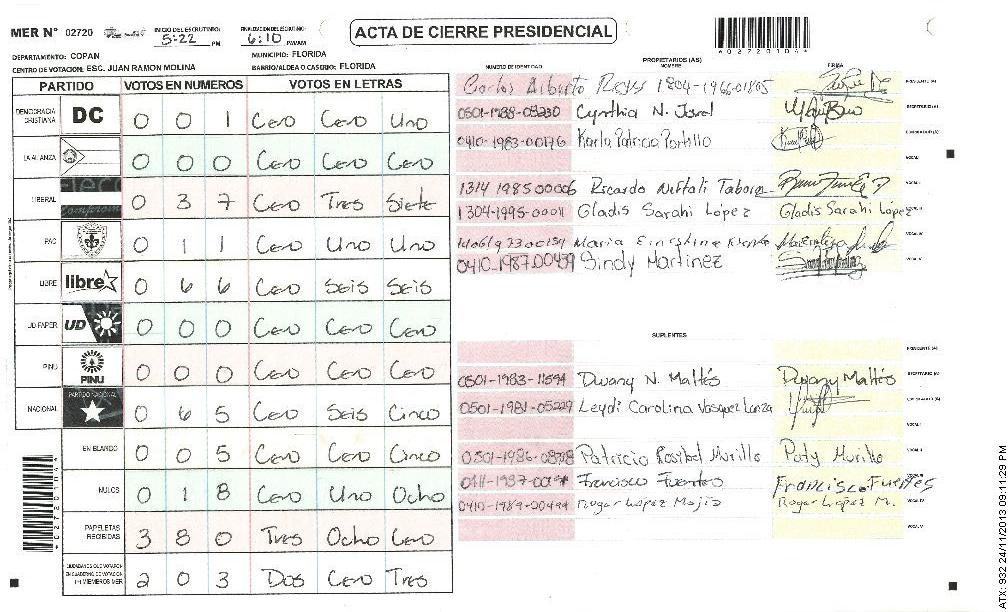 MER N° 02720 INICIO DEL ESCRUTINIO: 5:22 PM FINALIZACION DEL ESCRUTINIO: 6:10 PM/AM ACTA DE CIERRE PRESIDENCIAL
DEPARTAMENTO: COPAN MUNICIPIO: FLORIDA
CENTRO DE VOTACION: ESC. JUAN RAMON MOLINA BARRIO/ALDEA O CASERIO: FLORIDA
PARTIDO VOTOS EN NUMEROS VOTOS EN LETRAS
DEMOCRACIA CRISTIANA DC 0 0 1 Cero Cero Uno
LA ALIANZA 0 0 0 Cero Cero Cero
LIBERAL 0 3 7 Cero Tres Siete
PAC 0 1 1 Cero Uno Uno
LIBRE libre 0 6 6 Cero Seis Seis
UD FAPER UD 0 0 0 Cero Cero Cero
PINU PINU 0 0 0 Cero Cero Cero
NACIONAL PARTIDO NACIONAL 0 6 5 Cero Seis Cinco
EN BLANCO 0 0 5 Cero Cero Cinco
NULOS 0 1 8 Cero Uno Ocho
PAPELETAS RECIBIDAS 3 8 0 Tres Ocho Cero
CIUDADANOS QUE VOTARON EN CUADERNO DE VOTACION (+) MIEMBROS MER 2 0 3 Dos Cero Tres
PROPIETARIOS (AS)
NUMERO DE IDENTIDAD NOMBRE FIRMA
Carlos Alberto Reyes 1804-1966-01805 PRESIDENTE (A)
0501-1988-08230 Cynthia N. SECRETARIO (A)
0410-1983-00176 Karla Patricia Portillo
VOCAL I
1314 1985 00006 Ricardo Neftali Tabora VOCAL II
1304-1995-00011 Gladis Sarahi López Gladis Sarahi López
Maria
0410-1987-00459 Sindy Martinez
SUPLENTES
PRESIDENTE (A)
0501-1983-11594 Dwany N. Mattés Dwany Mattés SECRETARIO (A)
0501-1981-05229 Leydi Carolina Vasquez
VOCAL I
0501-1986-08718 Patricia Rosibel Murillo Paty Murillo VOCAL II
Francisco Fuentes Francisco Fuentes VOCAL III
0410-1989-00494 Roger Lopez Mejia Roger Lopez M. VOCAL IV
VOCAL V
* 0 2 7 2 0 1 0 4 *
ATX: 932 24/11/2013 09:11:29 PM